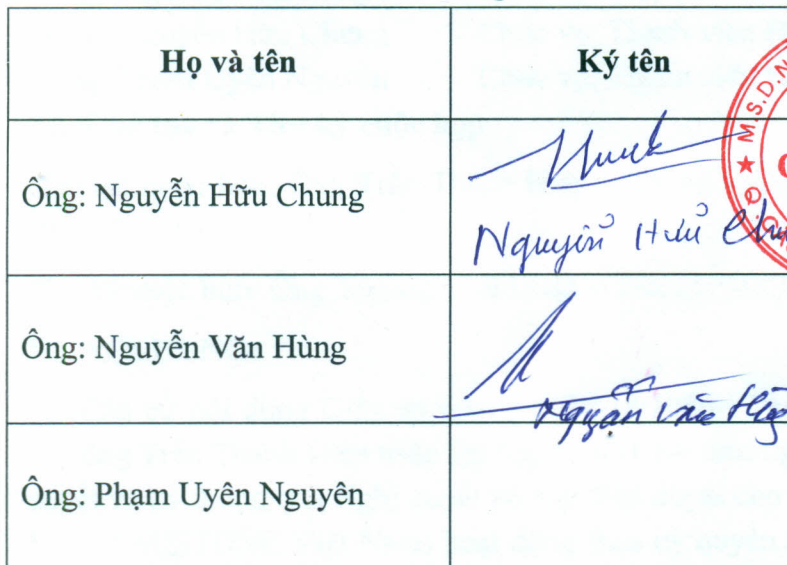 Họ và tên
Ký tên
M.S.D.N
Ông: Nguyễn Hữu Chung
Nguyễn Hữu Chu
Ông: Nguyễn Văn Hùng
Nguyễn Văn Hùng
Ông: Phạm Uyên Nguyên